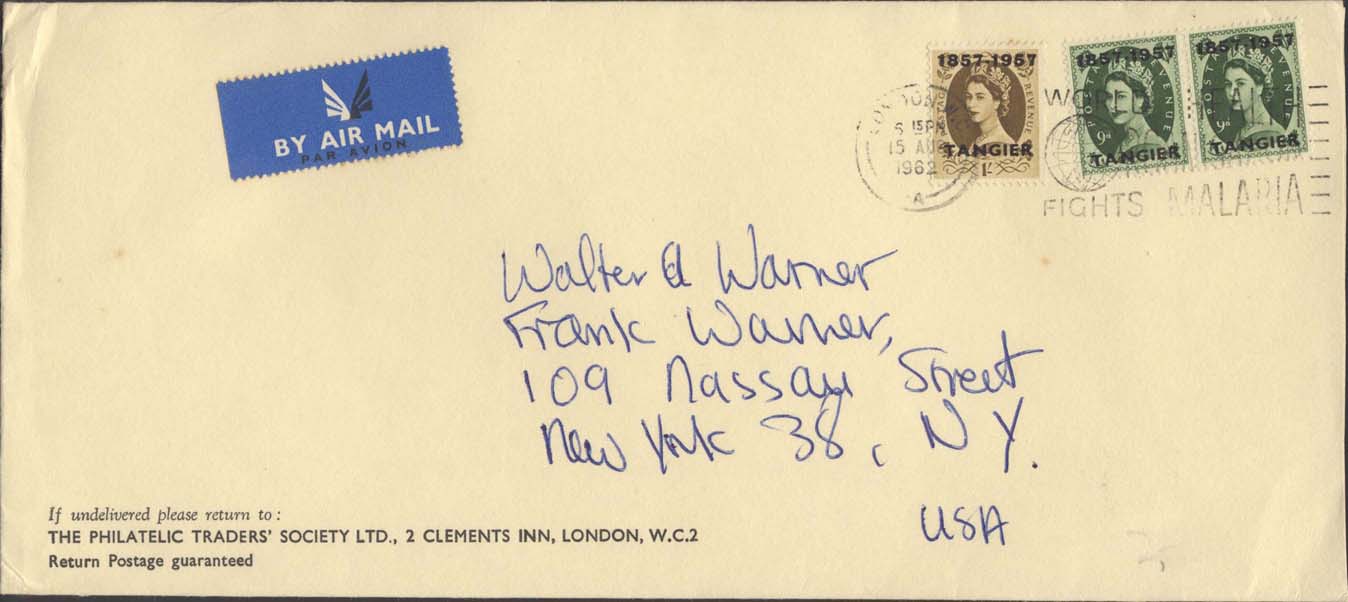 BY AIR MAIL
PAR AVION
1857-1957
POSTAGE REVENUE
TANGIER
1/-
1857-1957
POSTAGE REVENUE
9d
TANGIER
1857-1957
POSTAGE REVENUE
9d
TANGIER
LONDON
6 15PM
15 AUG
1962
A
WORLD
FIGHTS MALARIA
Walter A Warner
Frank Warner,
109 Nassau Street
New York 38, NY.
USA
If undelivered please return to :
THE PHILATELIC TRADERS' SOCIETY LTD., 2 CLEMENTS INN, LONDON, W.C.2
Return Postage guaranteed